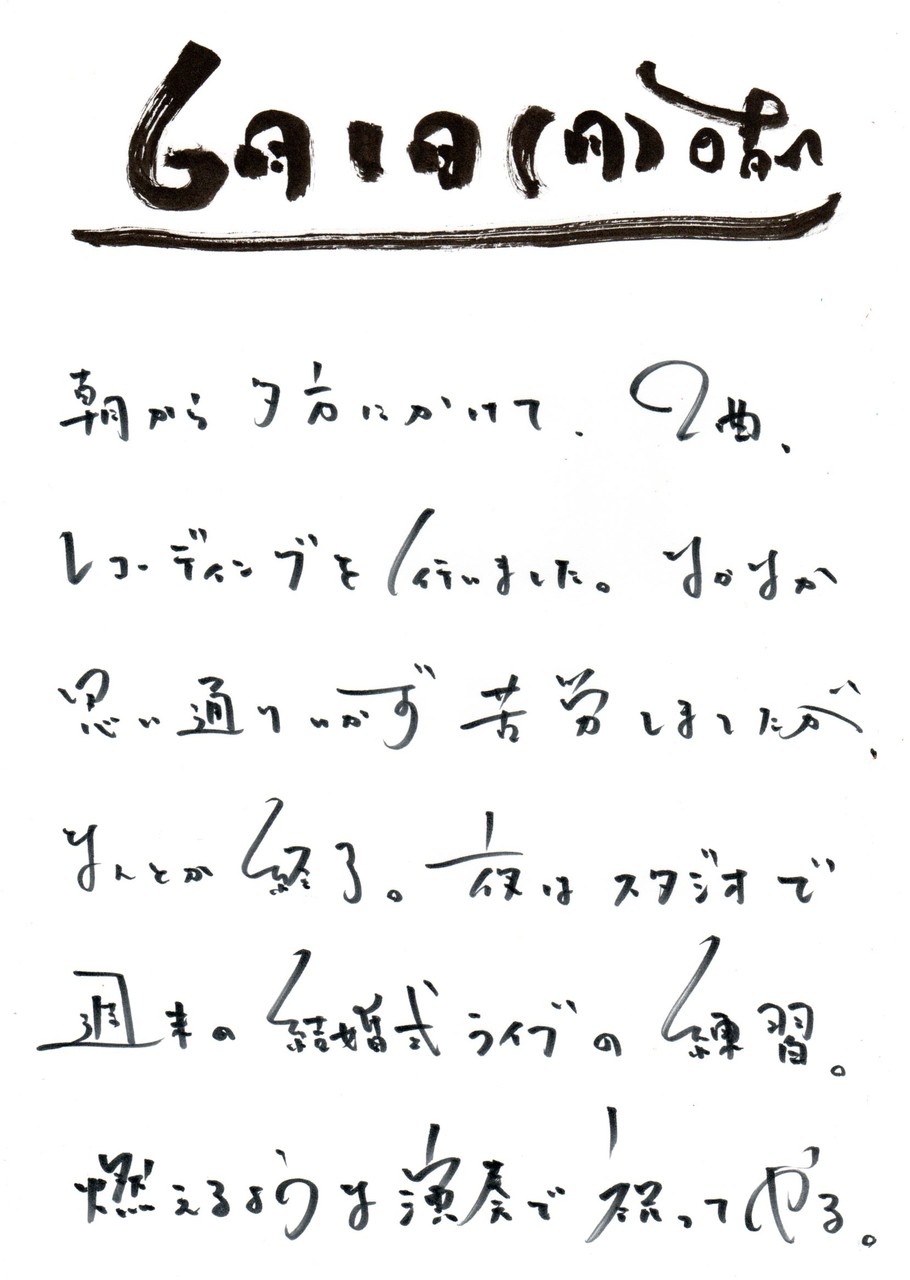 6月1日(月)晴れ
朝から夕方にかけて、2曲、
レコーディングを行いました。なかなか
思い通りいかず苦労しましたが、
なんとか終了。夜はスタジオで
週末の結婚式ライブの練習。
燃えるような演奏で祝ってやる。